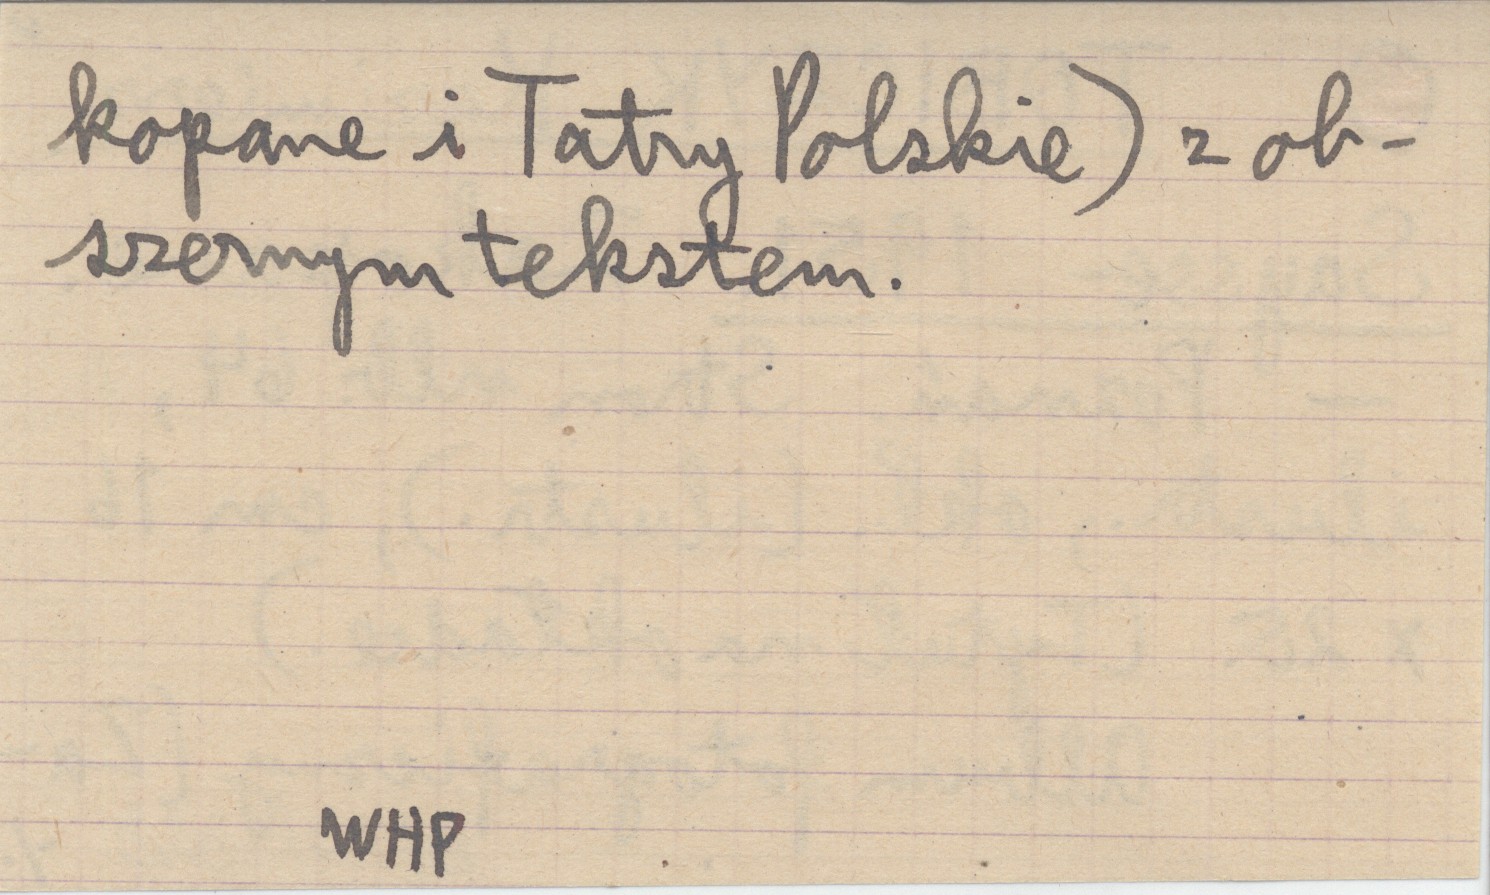 kopane i Tatry Polskie) z ob-
szernym tekstem.
WHP